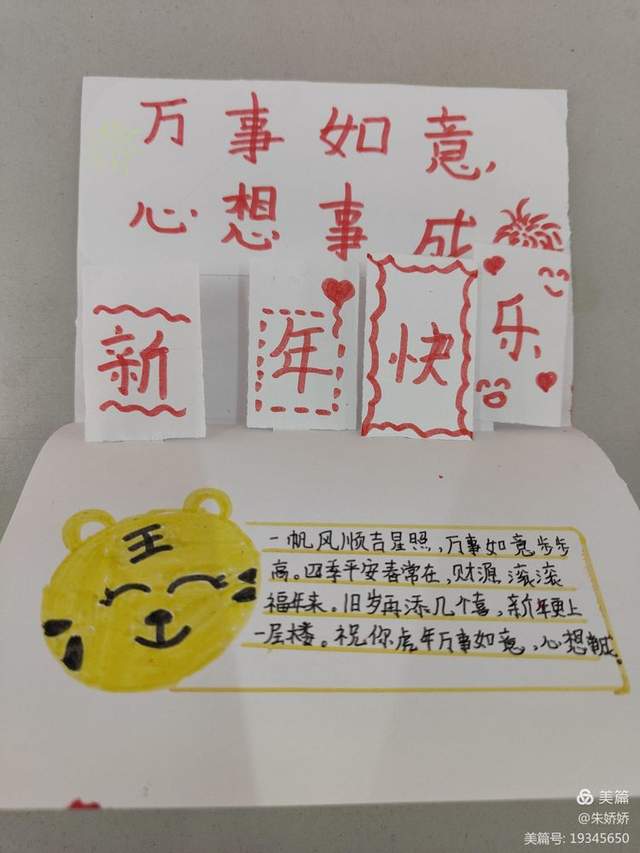 万事如意
心想事成
新年快乐
王
一帆风顺吉星照，万事如意步步
高。四季平安春常在，财源滚滚
福年来。旧岁再添几个喜，新年更上
一层楼。祝你虎年万事如意，心想事成。
美篇
@朱娇娇
美篇号: 19345650